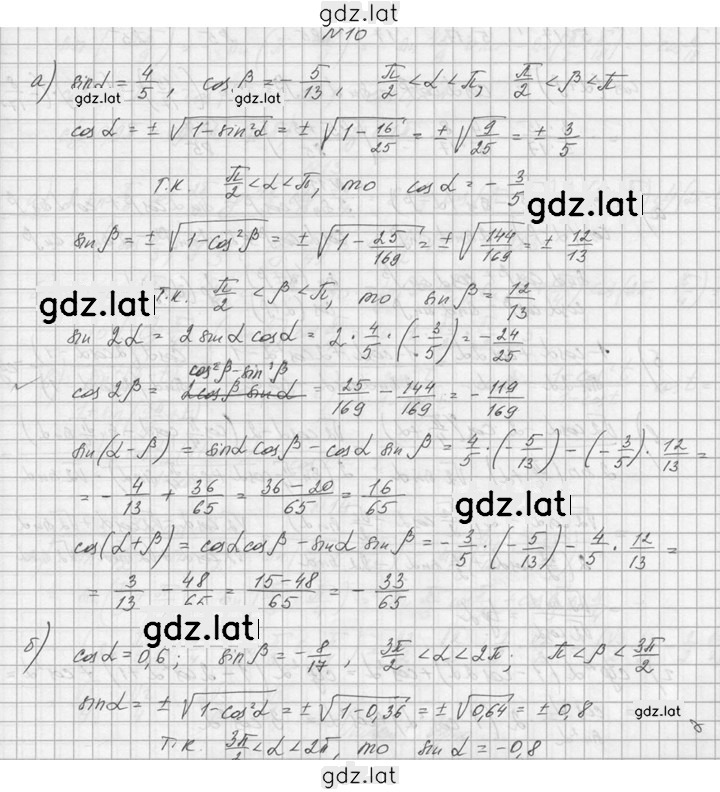 gdz.lat
№10
а) sinα = 4/5, cosβ = - 5/13, π/2 < α < π, π/2 < β < π
gdz.lat gdz.lat
cosα = ± √(1-sin²α) = ± √(1 - 16/25) = ± √(9/25) = ± 3/5
т.к. π/2 < α < π, то cosα = - 3/5
gdz.lat
sinβ = ± √(1-cos²β) = ± √(1 - 25/169) = ± √(144/169) = ± 12/13
gdz.lat
т.к. π/2 < β < π, то sinβ = 12/13
sin 2α = 2 sinα cosα = 2 · 4/5 · (- 3/5) = - 24/25
cos²β - sin²β
cos 2β = 2cosβ sinα = 25/169 - 144/169 = - 119/169
sin(α-β) = sinα cosβ - cosα sinβ = 4/5 · (- 5/13) - (- 3/5) · 12/13 =
= - 4/13 + 36/65 = 36-20/65 = 16/65
gdz.lat
cos(α+β) = cosα cosβ - sinα sinβ = - 3/5 · (- 5/13) - 4/5 · 12/13 =
= 3/13 - 48/65 = 15-48/65 = - 33/65
gdz.lat
б) cosα = 0,6; sinβ = - 8/17, 3π/2 < α < 2π; π < β < 3π/2
sinα = ± √(1-cos²α) = ± √(1-0,36) = ± √0,64 = ± 0,8
gdz.lat
т.к. 3π/2 < α < 2π, то sinα = -0,8
gdz.lat